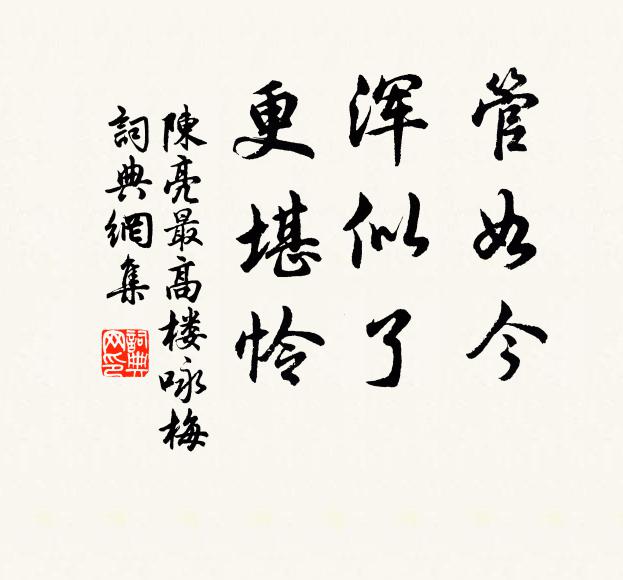 管如今
浑似了
更堪怜
陳亮最高楼咏梅
詞典網集
詞典网印